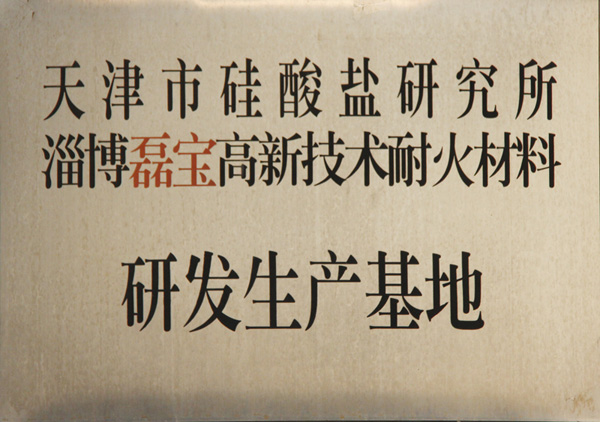 天津市硅酸盐研究所
淄博磊宝高新技术耐火材料
研发生产基地